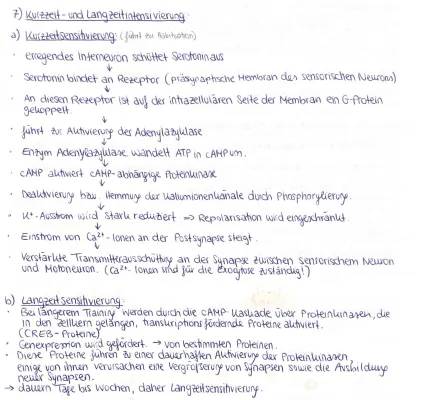 7) Kurzzeit- und Langzeitintensivierung
a) Kurzzeitsensitivierung: (führt zu Habituation)
· erregendes Interneuron schüttet Serotonin aus
↓
· Serotonin bindet an Rezeptor (präsynaptische Membran des sensorischen Neurons)
↓
· An diesen Rezeptor ist auf der intrazellulären Seite der Membran ein G-Protein
gekoppelt.
↓
· führt zur Aktivierung der Adenylatzyklase
↓
· Enzym Adenylatzyklase wandelt ATP in cAMP um.
↓
· cAMP aktiviert cAMP-abhängige Proteinkinase
↓
· Deaktivierung bzw. Hemmung der Kaliumionenkanäle durch Phosphorylierung.
↓
· K⁺-Ausstrom wird stark reduziert → Repolarisation wird eingeschränkt.
↓
· Einstrom von Ca²⁺-Ionen an der Postsynapse steigt.
↓
· Verstärkte Transmitterausschüttung an der Synapse zwischen sensorischem Neuron
und Motoneuron. (Ca²⁺-Ionen sind für die Exozytose zuständig!)
b) Langzeitsensitivierung:
· Bei längerem Training werden durch die cAMP-Kaskade über Proteinkinasen, die
in den Zellkern gelangen, transkriptionsfördernde Proteine aktiviert.
(CREB-Proteine)
· Genexpression wird gefördert. → von bestimmten Proteinen.
· Diese Proteine führen zu einer dauerhaften Aktivierung der Proteinkinasen,
einige von ihnen verursachen eine Vergrößerung von Synapsen sowie die Ausbildung
neuer Synapsen.
→ dauern Tage bis Wochen, daher Langzeitsensitivierung.